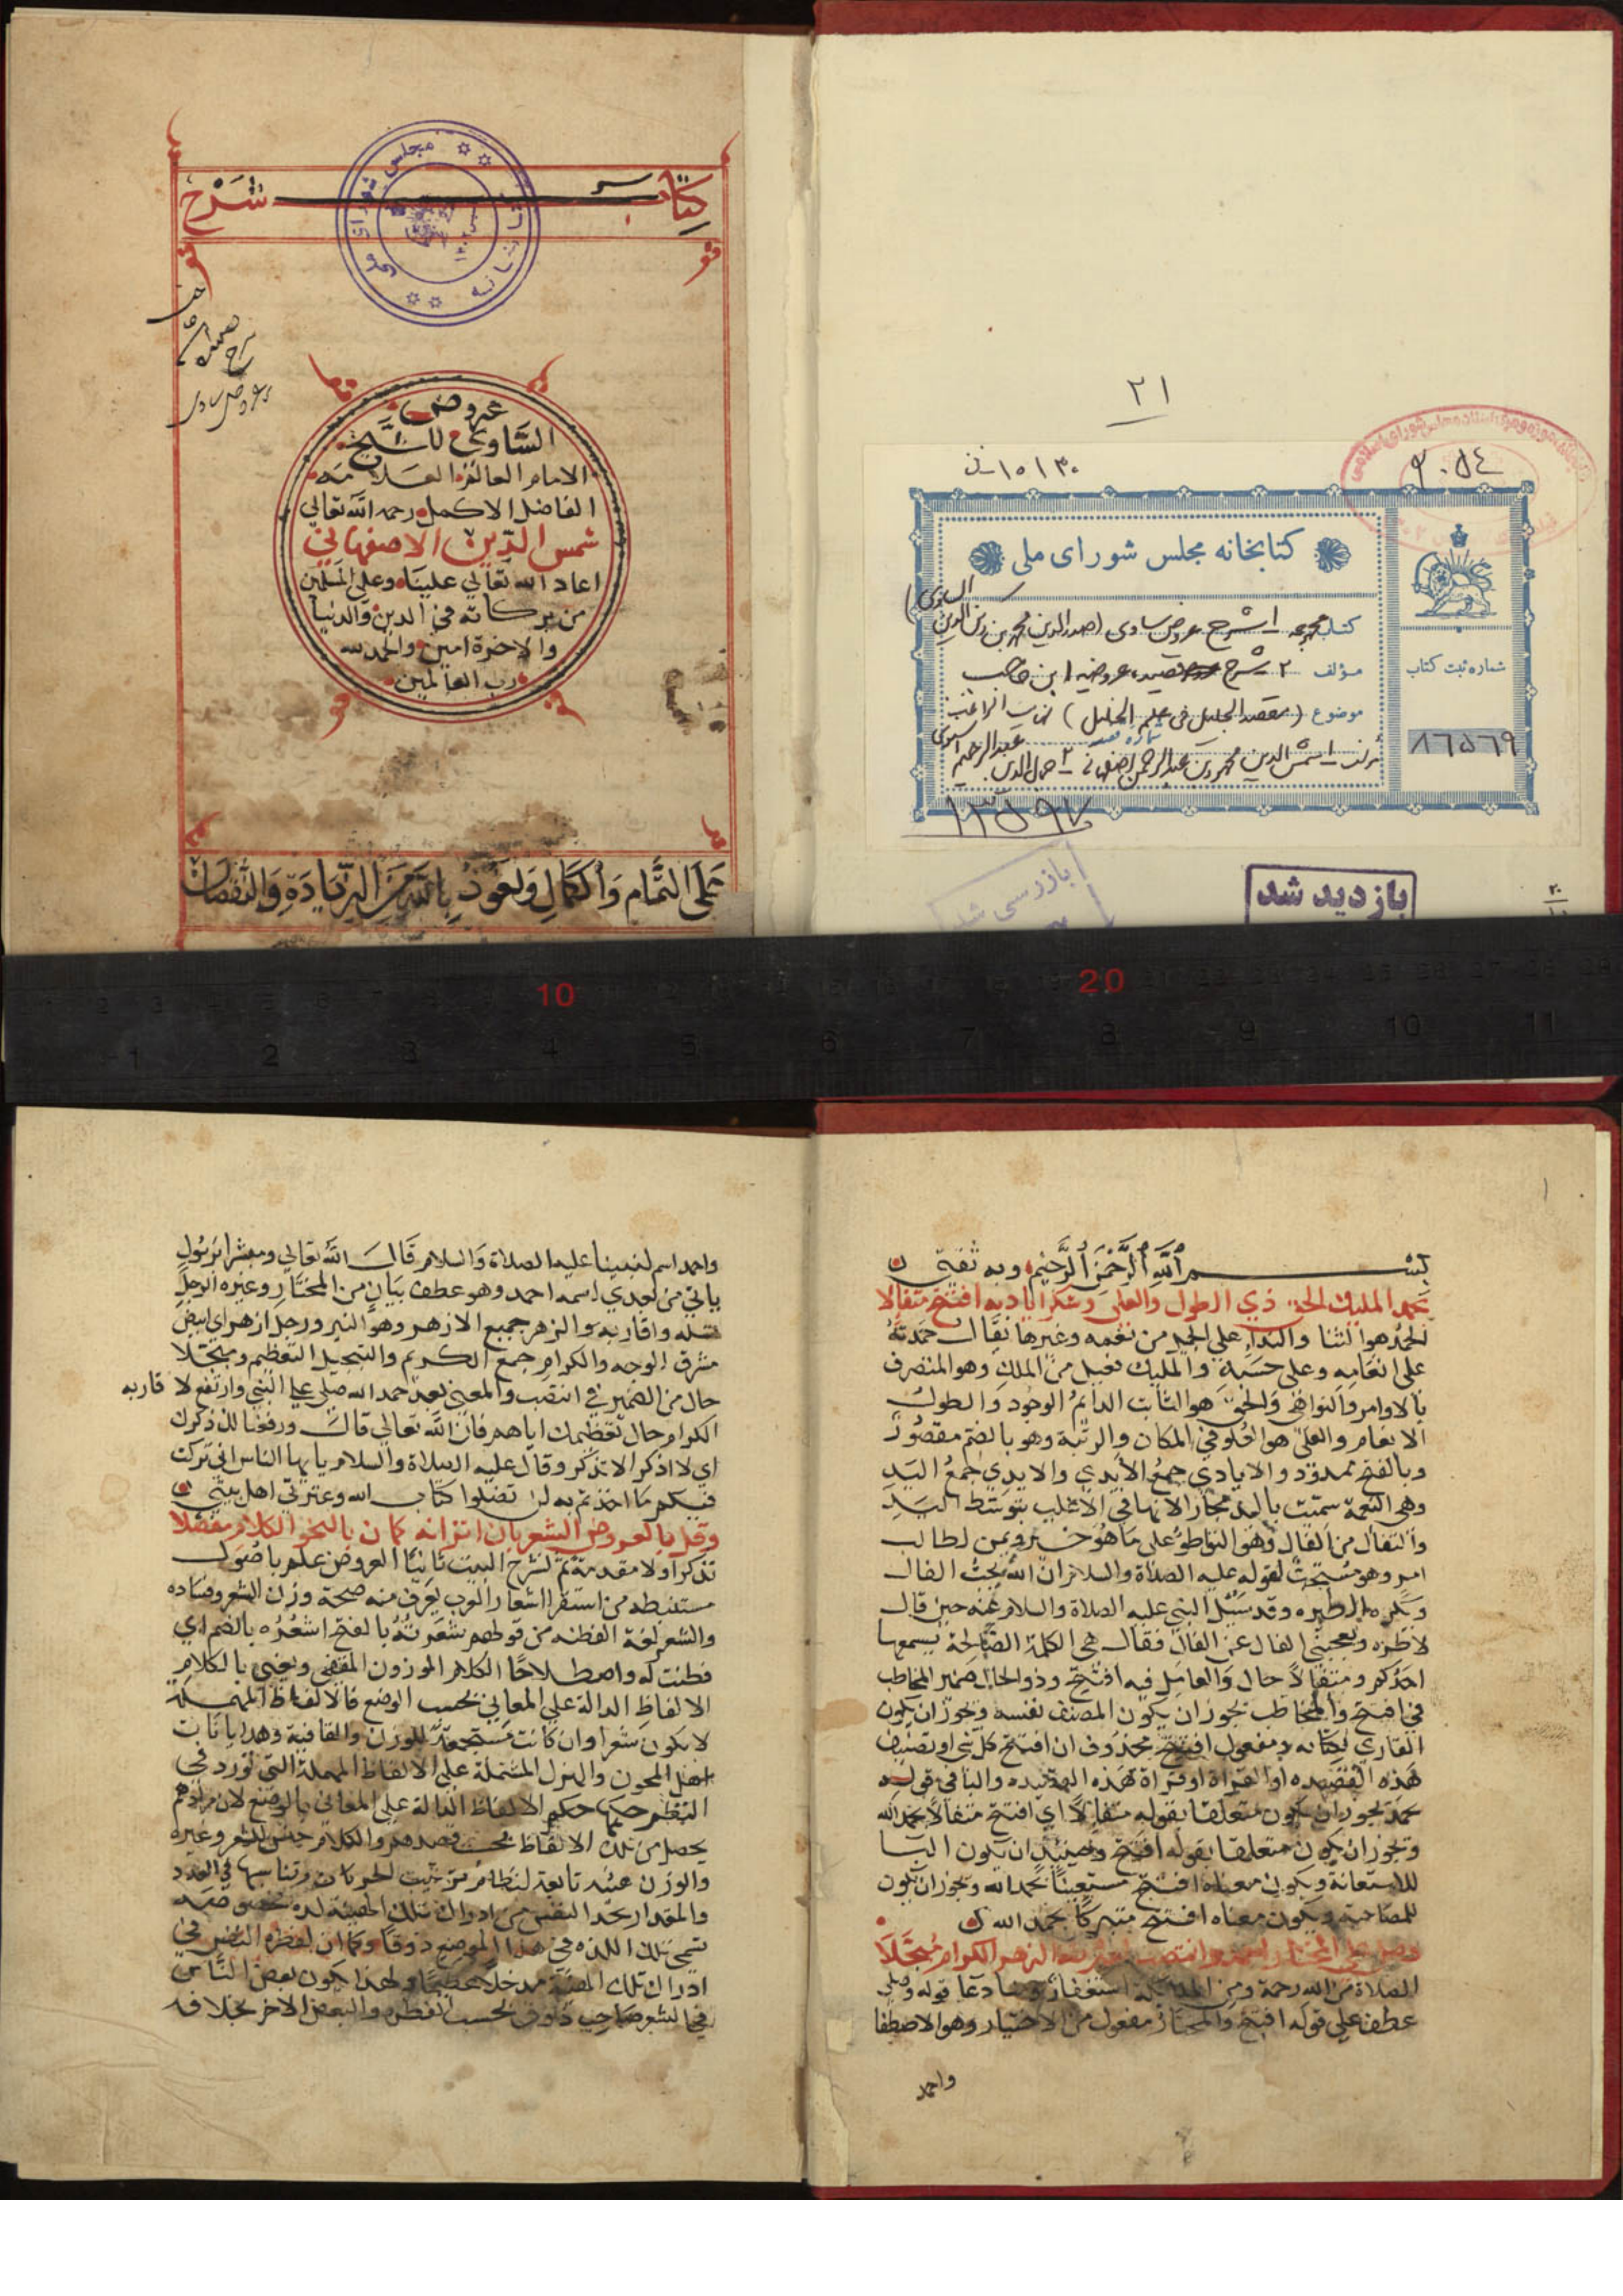 ٢١
١٥١٣٠
٩٠٥٤
كتابخانه مجلس شوراى ملى
كتاب مجموعه ١ـ شرح عروض ساوى (صدرالدين محمد بن ركن الدين الساوى)
مؤلف ٢ـ شرح قصيده عروضيه ابن حاجب
موضوع (مقصد الجليل فى علم الخليل) نهاية الراغب
مؤلف ١ـ شمس الدين محمود بن عبدالرحمن اصفهانى ٢ـ جمال الدين عبدالرحيم اسنوى
شماره ثبت كتاب
٨٦٥٦٩
١٣٥٩٧
بازرسى شد
بازديد شد
كتاب شرح
كتابخانه مجلس شوراى ملى
عروض
الساوي للشيخ
الامام العالم العلامه
الفاضل الاكمل رحمه الله تعالي
شمس الدين الاصفهاني
اعاد الله تعالي علينا وعلي المسلمين
من بركاته في الدين والدنيا
والاخرة امين والحمد لله
رب العالمين
عَلَى التَّمَام وَالْكَمَالِ وَنَعُوذُ بِاللَّهِ مِنَ الزِّيَادَةِ وَالنُّقْصَانِ
10 20
1 2 3 4 5 6 7 8 9 10 11
بسم اللهِ الرَّحْمَنِ الرَّحِيْمِ وبه ثقتي
بحمد المليك الحق ذي الطول والعلى وشكر اياديه افتتح متفالا
الحمد هو الثنا والندا على الجميل من نعمه وغيرها يقال حمدته
على انعامه وعلى حسبه والمليك فعيل من الملك وهو المتصرف
بالاوامر والنواهي والحق هو الثابت الدائم الوجود والطول
الانعام والعلى هو العلو في المكان والرتبة وهو بالضم مقصور
وبالفتح ممدود والايادي جمع الأيدي والايدي جمع اليد
وهي النعمة سميت باليد مجازا لانها في الأغلب بتوسط اليد
والتفأل من الفال وهو التواطؤ على ما هو خير ويمن لطالب
امر وهو مستحب لقوله عليه الصلاة والسلام ان الله يحب الفال
ويكره الطيره وقد سئل النبي عليه الصلاة والسلام عنه حين قال
لا طيره ويعجبني الفال عن الفال فقال هي الكلمة الصالحة يسمعها
احدكم ومتفالا حال والعامل فيه افتتح وذو الحال ضمير المخاطب
في افتتح والمخاطب يجوز ان يكون المصنف نفسه ويجوز ان يكون
القاري لكتابه ومفعول افتتح محذوف ان افتتح كل شي او تصنيف
هذه القصيده او القراة او قراة هذه القصيده والبا في قوله
بحمد يجوز ان يكون متعلقا بقوله متفالا اي افتتح متفالا بحمد الله
ويجوز ان يكون متعلقا بقوله افتتح وحينئذ ان يكون البا
للاستعانة ويكون معناه افتتح مستعينا بحمد الله ويجوز ان يكون
للمصاحبة ويكون معناه افتتح متبركا بحمد الله
وصل على المختار احمد وانتصب لعترته الزهر الكرام مبجلا
الصلاة من الله رحمة ومن الملائكة استغفار ومنا دعا قوله وصل
عطف على قوله افتتح والمختار مفعول من الاختيار وهو الاصطفا
واحمد
واحمد اسم لنبينا عليه الصلاة والسلام قال الله تعالي ومبشرا برسول
ياتي من بعدي اسمه احمد وهو عطف بيان من المختار وعتره الرجل
نسله واقاربه والزهر جميع الازهر وهو النير ورجل ازهر اي ابيض
مشرق الوجه والكرام جمع الكريم والتبجيل التعظيم ومبجلا
حال من الضمير في انتصب والمعني بعد حمد الله صلي علي النبي وارتفع لاقاربه
الكرام حال تعظيمك اياهم فان الله تعالي قال ورفعنا لك ذكرك
اي لا اذكر الا تذكر وقال عليه الصلاة والسلام يايها الناس اني تركت
فيكم ما ان اخذتم به لن تضلوا كتاب الله وعترتي اهل بيتي
وقل بالعروض الشعر بان اتزانه كما ن بالنحو الكلام مفضلا
تذكر اولا مقدمة ثم نشرح البيت ثانيا العروض علم باصول
مستنبطه من استقرا اشعار العرب يعرف منه صحة وزن الشعر وفساده
والشعر لغة الفطنه من قولهم شعرت به بالفتح اشعر به بالضم اي
فطنت له واصطلاحا الكلام الموزون المقفى ونعني بالكلام
الالفاظ الدالة على المعاني بحسب الوضع فالالفاظ المهملة
لا يكون شعرا وان كانت مستجمعة للوزن والقافية وهذا باتات
اهل المجون والهزل المشتملة على الالفاظ المهملة التي تورد في
النظم حكمها حكم الالفاظ الدالة على المعاني بالوضع لان مرادهم
يحصل من تلك الالفاظ بحسب قصدهم والكلام جنس للشعر وغيره
والوزن هيئه تابعة لنظام ترتيب الحركات وتناسبها في العدد
والمقدار يجد النفس من ادراك تلك الهيئة لذه مخصوصه
تسمي تلك اللذه في هذا الموضع ذوقا وكما ان لفطره النفس في
ادراك تلك الهيئة مدخلا عظيما ولهذا يكون بعض الناس
في الشعر صاحب ذوق بحسب الفطره والبعض الاخر بخلافه